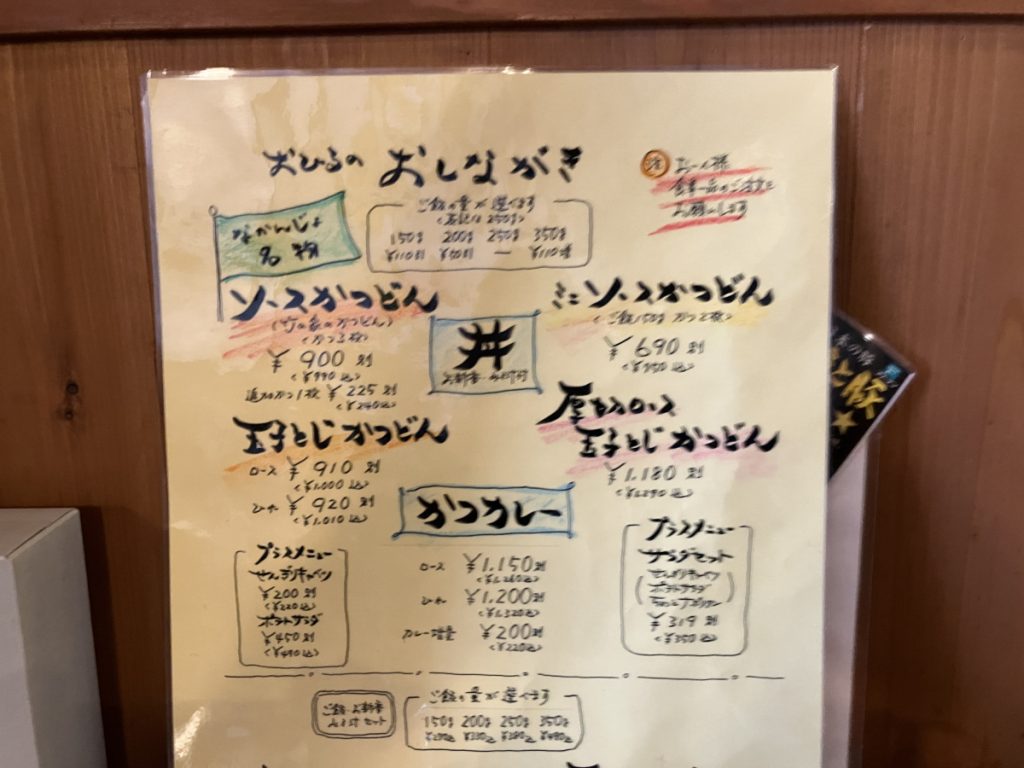 おひるの おしながき
注 お一人様
一品のご注文を
お願いします
なかんじょ
名物
ご飯の量が選べます
150g 200g 250g 350g
ソースかつどん
<かつ3枚>
¥900 別
<¥990込>
追加かつ1枚 ¥225 別
<¥240込>
丼
お新香・みそ汁付
ミニソースかつどん
<ご飯150g かつ2枚>
¥690 別
玉子とじかつどん
ロース ¥910 別
<¥1,000込>
ひれ ¥920 別
<¥1,010込>
厚切りロース
玉子とじかつどん
¥1,180 別
<¥1,290込>
かつカレー
ロース ¥1,150 別
<¥1,260込>
ひれ ¥1,200 別
<¥1,320込>
カレー増量 ¥200 別
<¥220込>
プラスメニュー
せんぎりキャベツ
¥200 別
<¥220込>
ポテトサラダ
¥450 別
<¥490込>
プラスメニュー
サラダセット
せんぎりキャベツ
ポテトサラダ
¥319 別
<¥350込>
ご飯・お新香
みそ汁セット
ご飯の量が選べます
150g 200g 250g 350g
豚